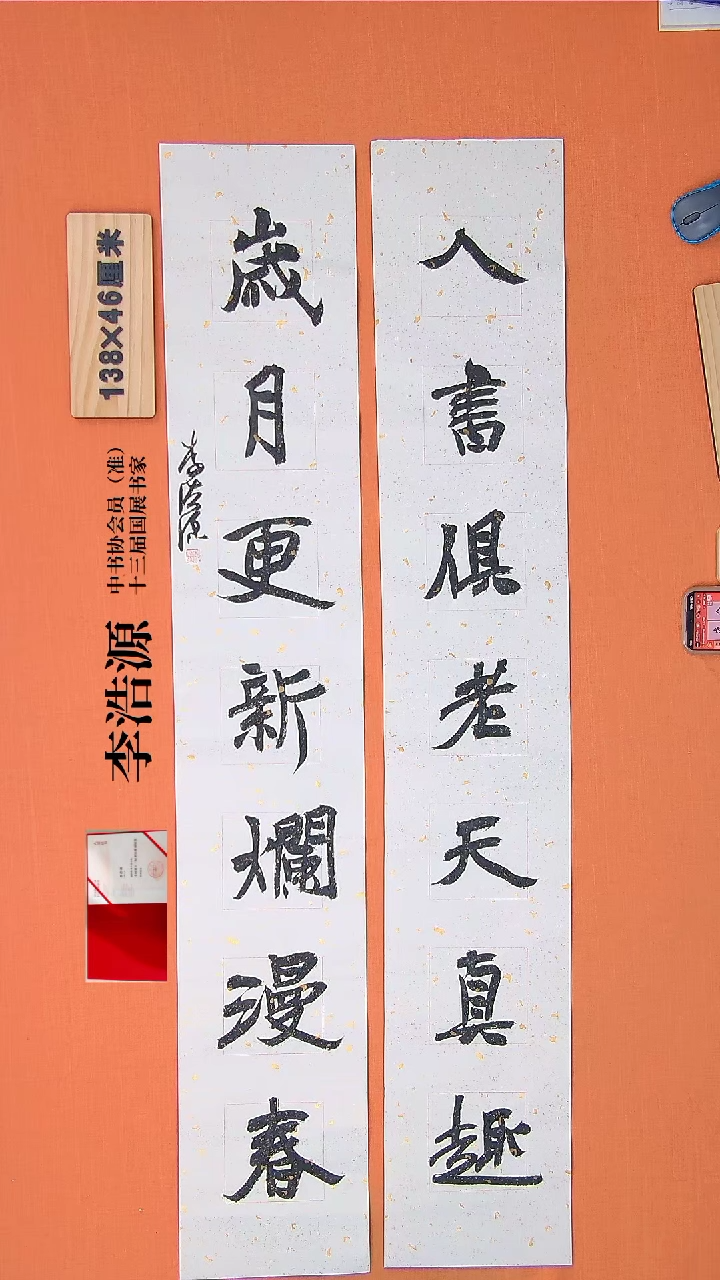 人書俱老天真趣
歲月更新爛漫春
李浩源
138×46厘米
中书协会员（准）
十三届国展书家
李浩源